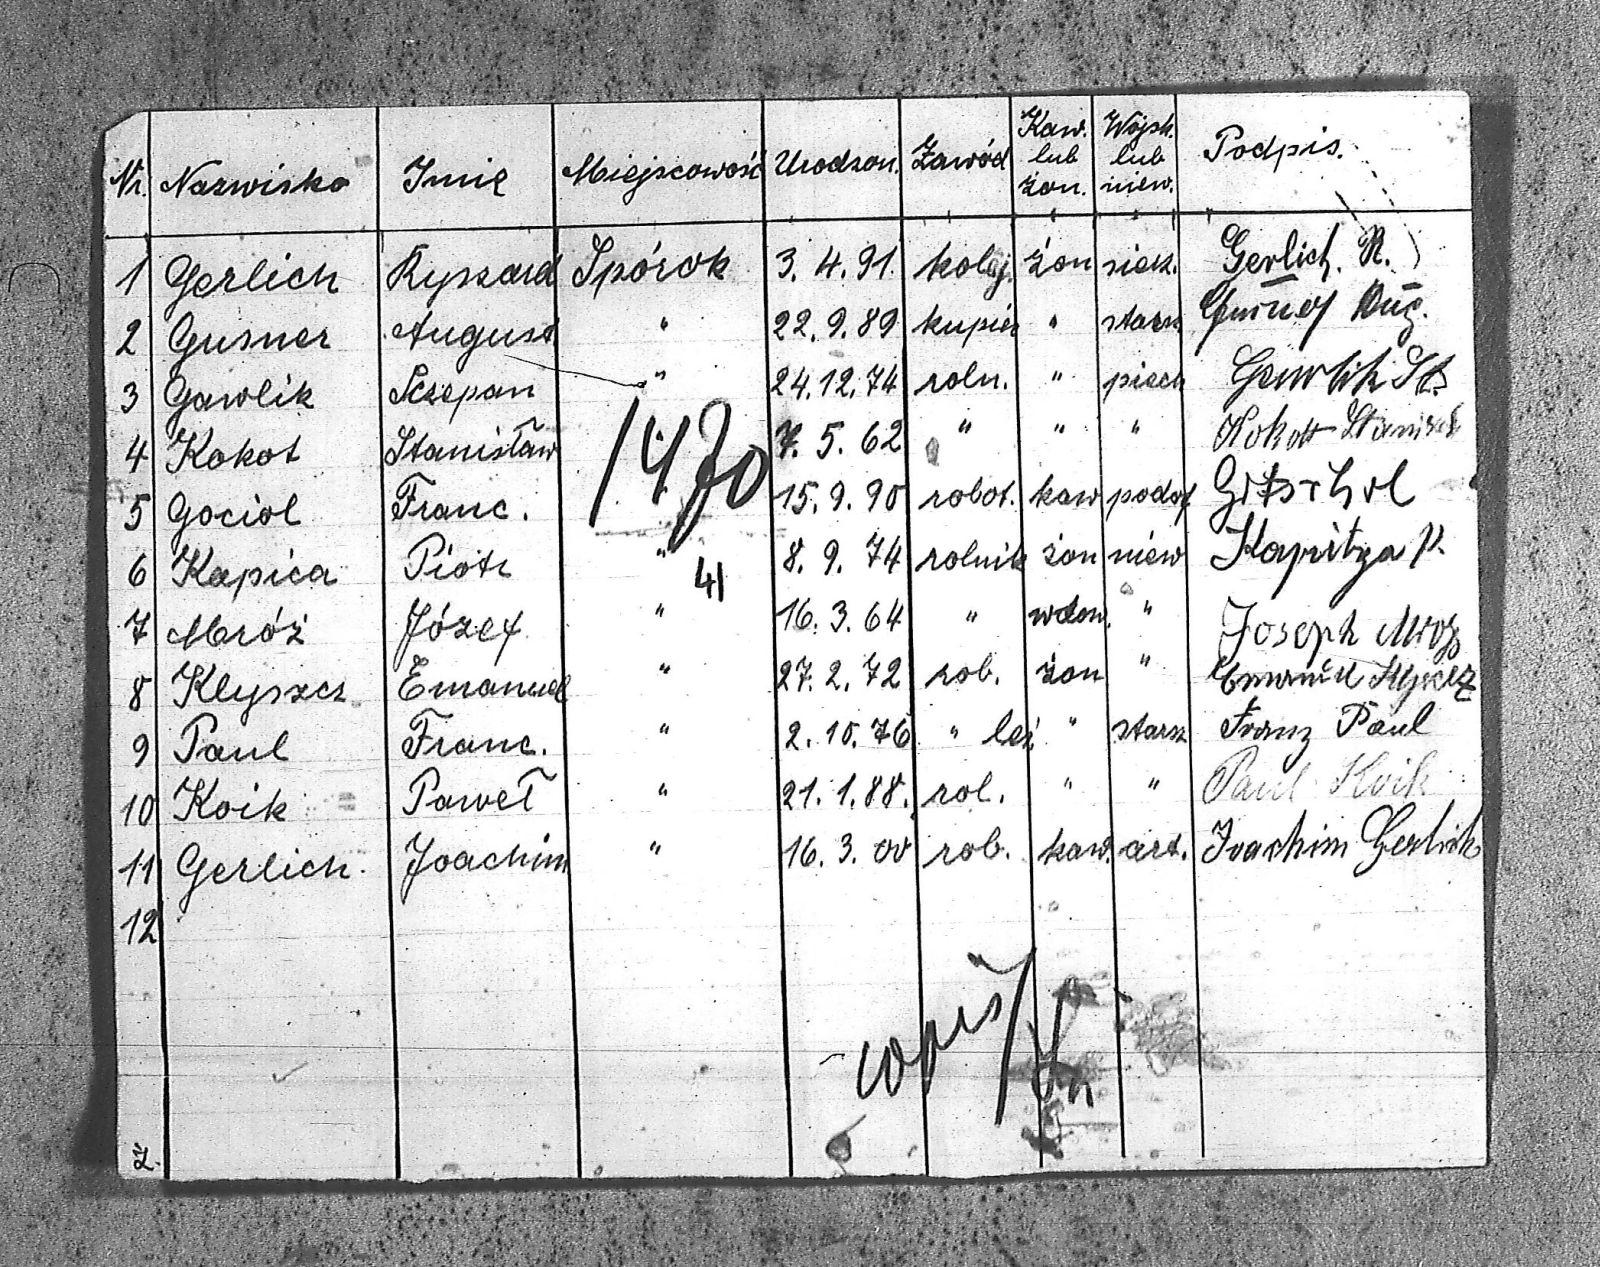 Nr. Nazwisko Imię Miejscowość Urodzon. Zawód Kaw. lub żon. Wojsk. lub niew. Podpis.
1 Gerlich Ryszard Spórok 3.4.91. kolej. żon Gerlich. R.
2 Gusner August " 22.9.89 kupiec " starsz
3 Gawlik Sczepan " 24.12.74 roln. " piech Gawlik St.
4 Kokot Stanisław 7.5.62 " " " Kokott Stanisl
1470
5 Gociol Franc. 15.9.90 robot. kaw podof
6 Kapica Piotr " 8.9.74 rolnik żon niew Kapitza P.
41
7 Mróz Józef " 16.3.64 " wdow. " Joseph Mroz
8 Klyszcz Emanuel " 27.2.72 rob. żon " Emanuel
9 Paul Franc. " 2.10.76 " leś " starsz Franz Paul
10 Koik Paweł " 21.1.88. rol. " " Paul Koik
11 Gerlich. Joachim " 16.3.00 rob. kaw. art. Joachim Gerlich
12
Z.